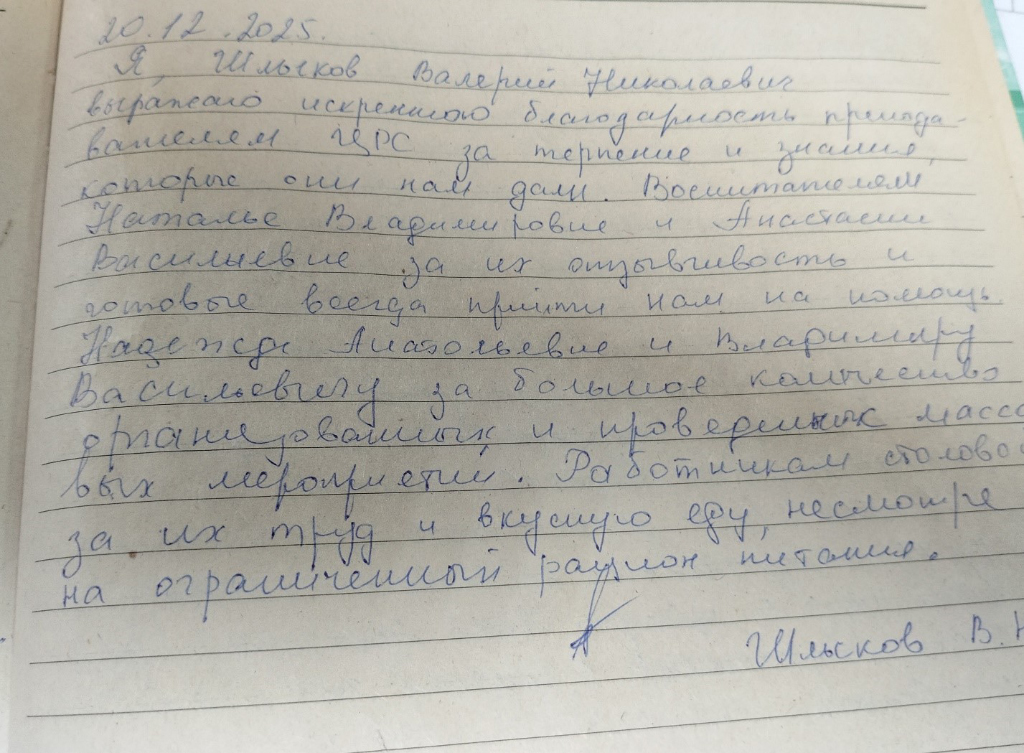 20.12.2025.
Я, Шлысков Валерий Николаевич
выражаю искреннюю благодарность препода-
вателям ЦРС за терпение и знания,
которые они нам дали. Воспитателям
Наталье Владимировне и Анастасии
Васильевне за их отзывчивость и
готовые всегда прийти нам на помощь.
Надежде Анатольевне и Владимиру
Васильевичу за большое количество
организованных и проведенных массо
вых мероприятий. Работникам столово
за их труд и вкусную еду, несмотре
на ограниченный рацион питания.
Шлысков В.Н